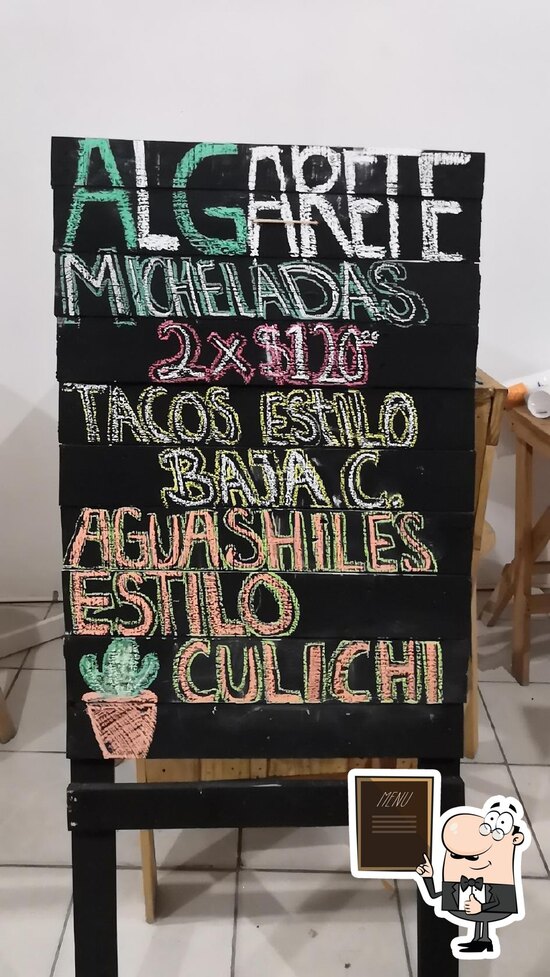 ALGARETE
MICHELADAS
2 x $120⁰⁰
TACOS ESTILO
BAJA.C.
AGUASHILES
ESTILO
CULICHI
MENU